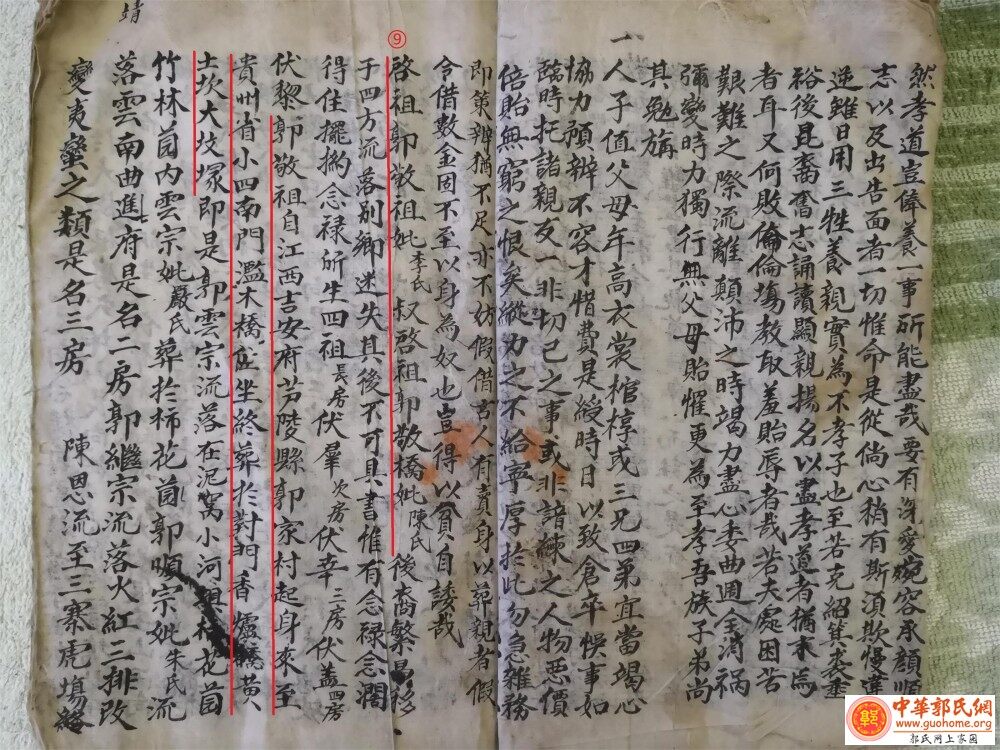 然孝道豈偉養一事所能盡哉要有深愛婉容承顏順
志以及出告面者一切惟命是從倘心稍有斯須欺慢違
逆雖日用三牲養親實為不孝子也至若克紹箕裘垂
裕後昆裔奮志誦讀顯親揚名以盡孝道者猶末焉
者耳又何敗倫倫塲教取羞貽辱者哉若夫處困苦
艱難之際流離顛沛之時竭力盡心委曲週全消禍
彌變時力獨行無父母貽懼更為至孝吾族子弟尚
其勉旃
一人子值父母年高衣裳棺椁或三兄四弟宜當竭心
協力預辦不容才惜費是緩時日以致倉卒悞事如
臨時托諸親友一非切己之事或非諳練之人物惡價
倍貽無窮之恨矣縱力之不給寧厚於此勿急雜務
即策辦猶不足亦不妨假借古人有賣身以葬親者假
令借數金固不至以身為奴也豈得以貧自諉哉
⑨
啓祖郭敬祖妣李氏 叔啓祖郭敬橋妣陳氏後裔繁昌移
于四方流落別鄉迷失其後不可具書惟有念禄念濶
得住擺㧐念禄所生四祖長房伏羣次房伏幸三房伏蓋四房
伏黎郭敬祖自江西吉安府芦陵縣郭家村起身來至
貴州省小四南門濫木橋㘴坐終葬於對門香爐 黃
土坎大坟塚即是郭雲宗流落在泥窩小河 花茴
竹林茴內雲宗妣嚴氏葬於柿花茴郭順宗妣朱氏流
落雲南曲進府是名二房郭繼宗流落火紅三排改
變夷蠻之類是名三房 陳思流至三寨虎塲
靖
中華郭氏網
www.guohome.org
郭氏网上家園